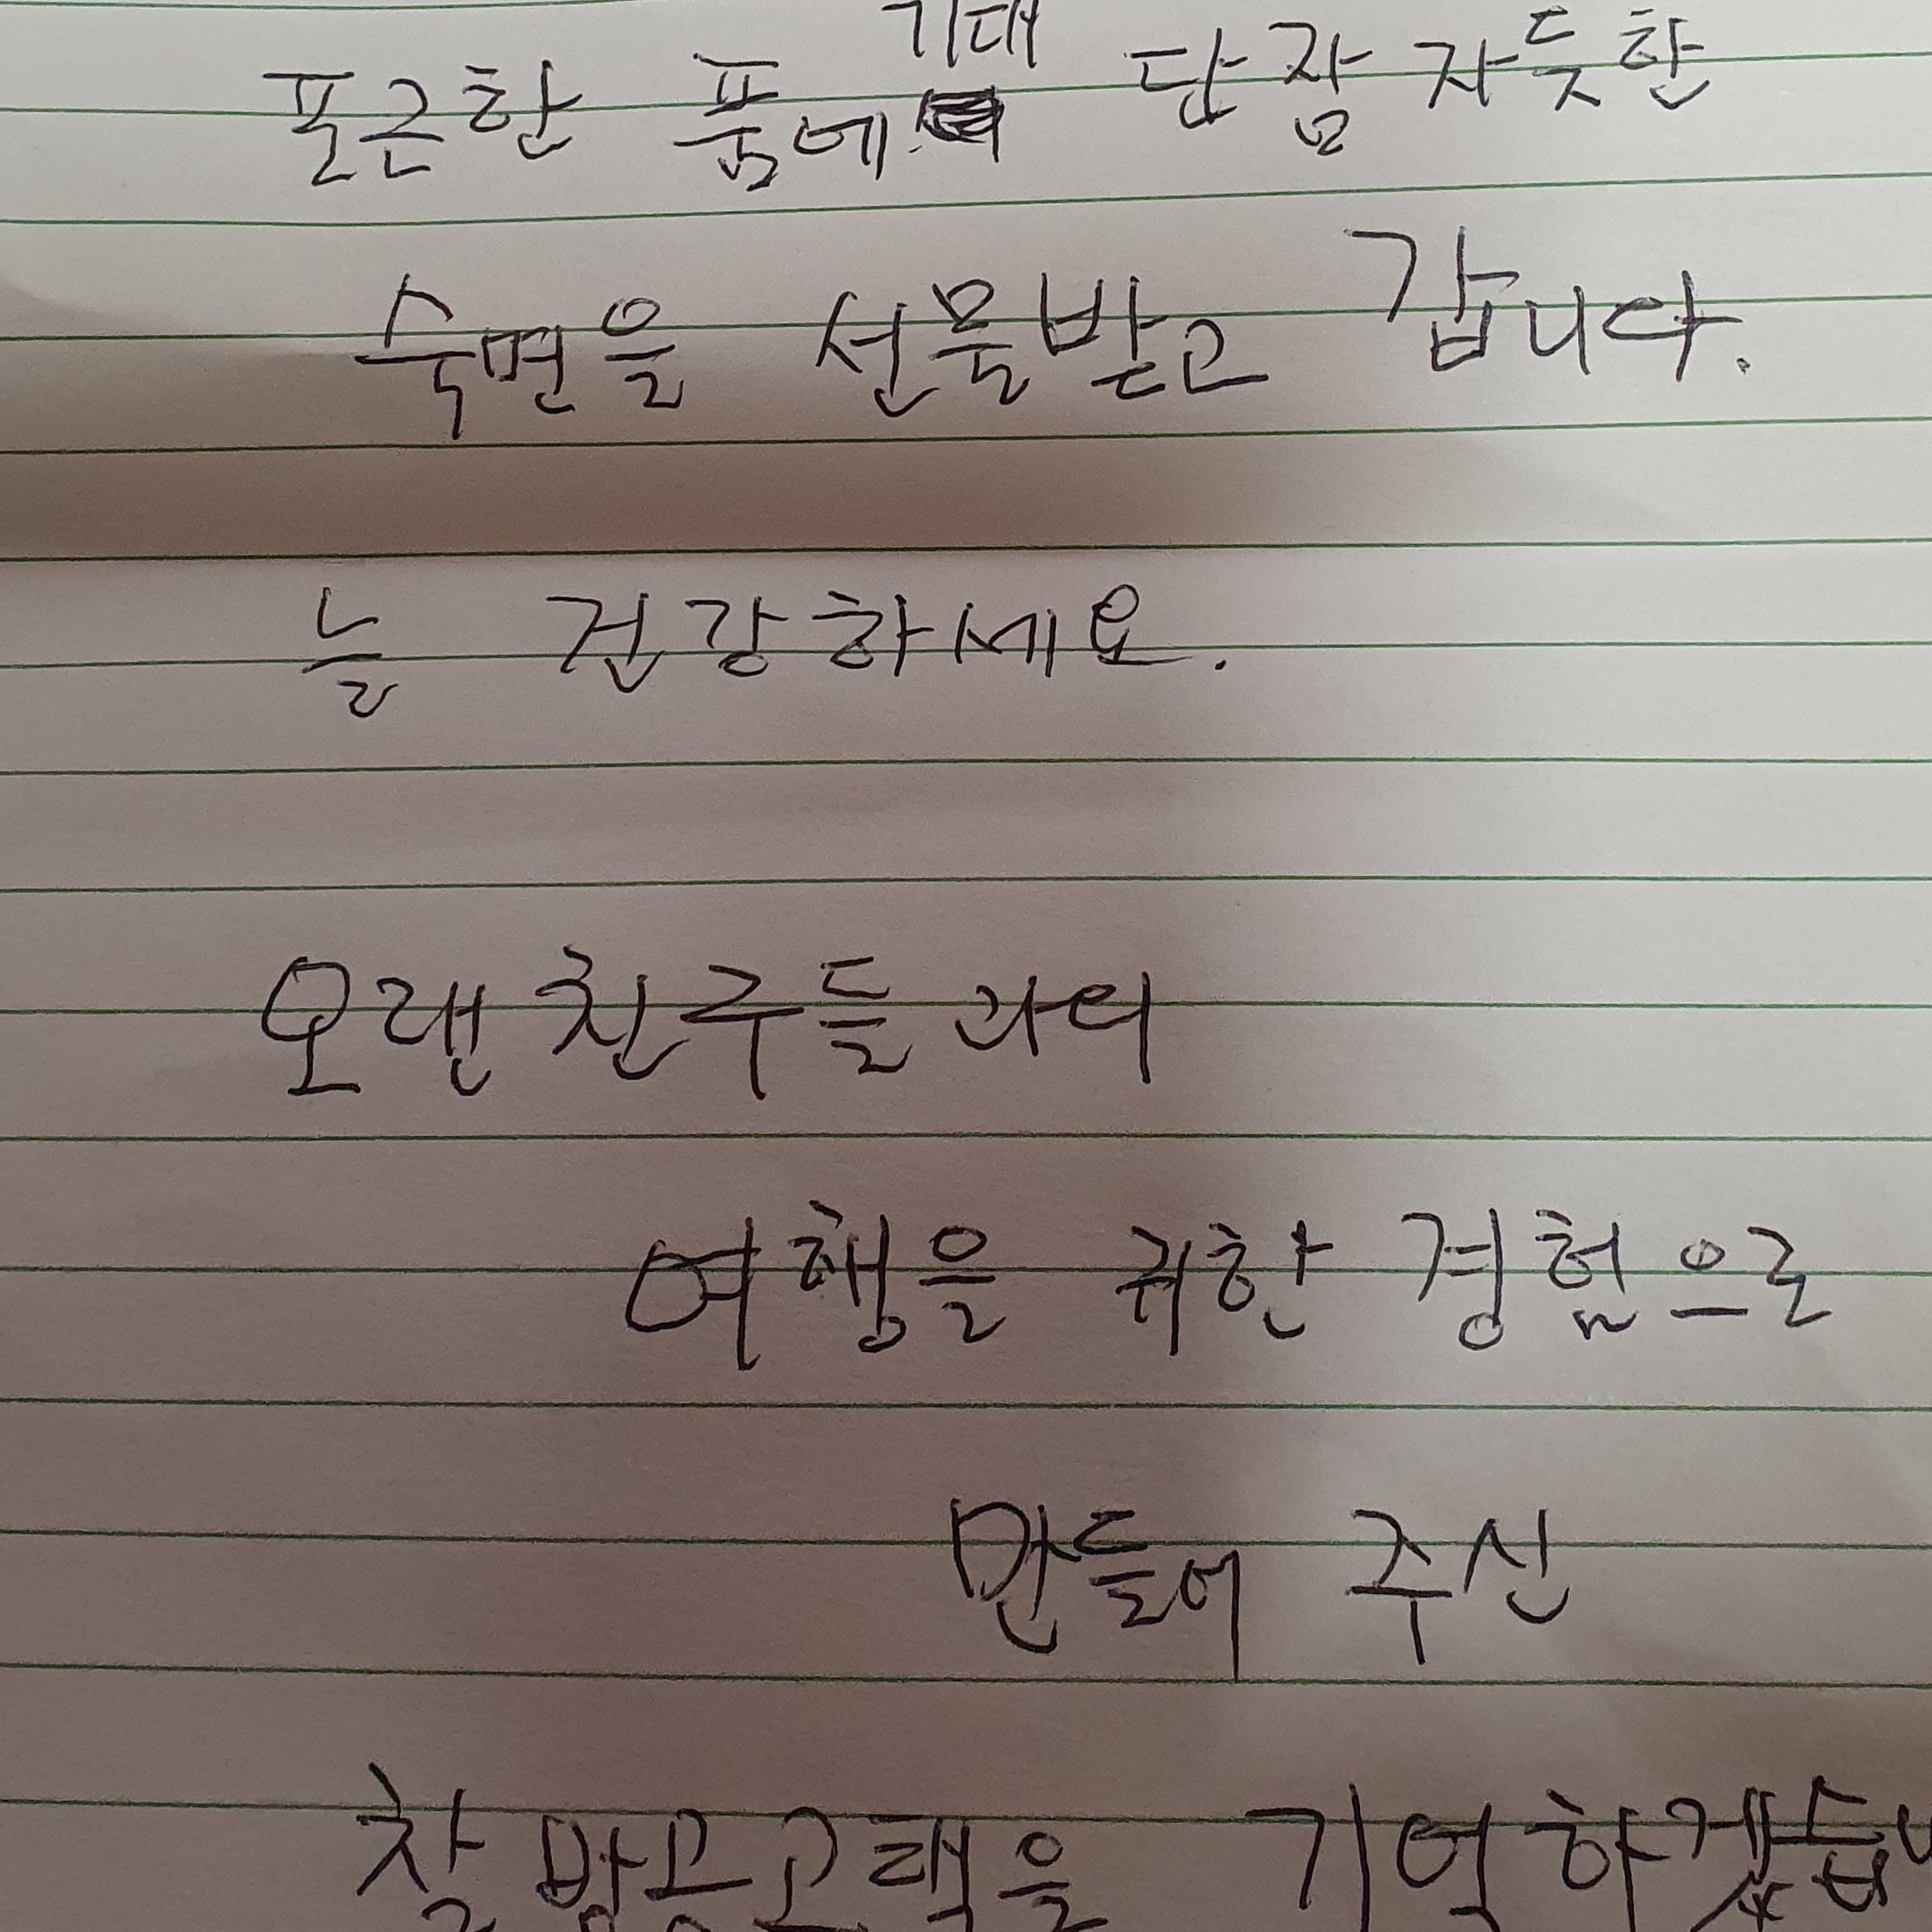 포근한 품에 기대 단잠 자듯한
숙면을 선물받고 갑니다.
늘 건강하세요.
오랜 친구들과의
여행을 귀한 경험으로
만들어 주신
기억하겠습니